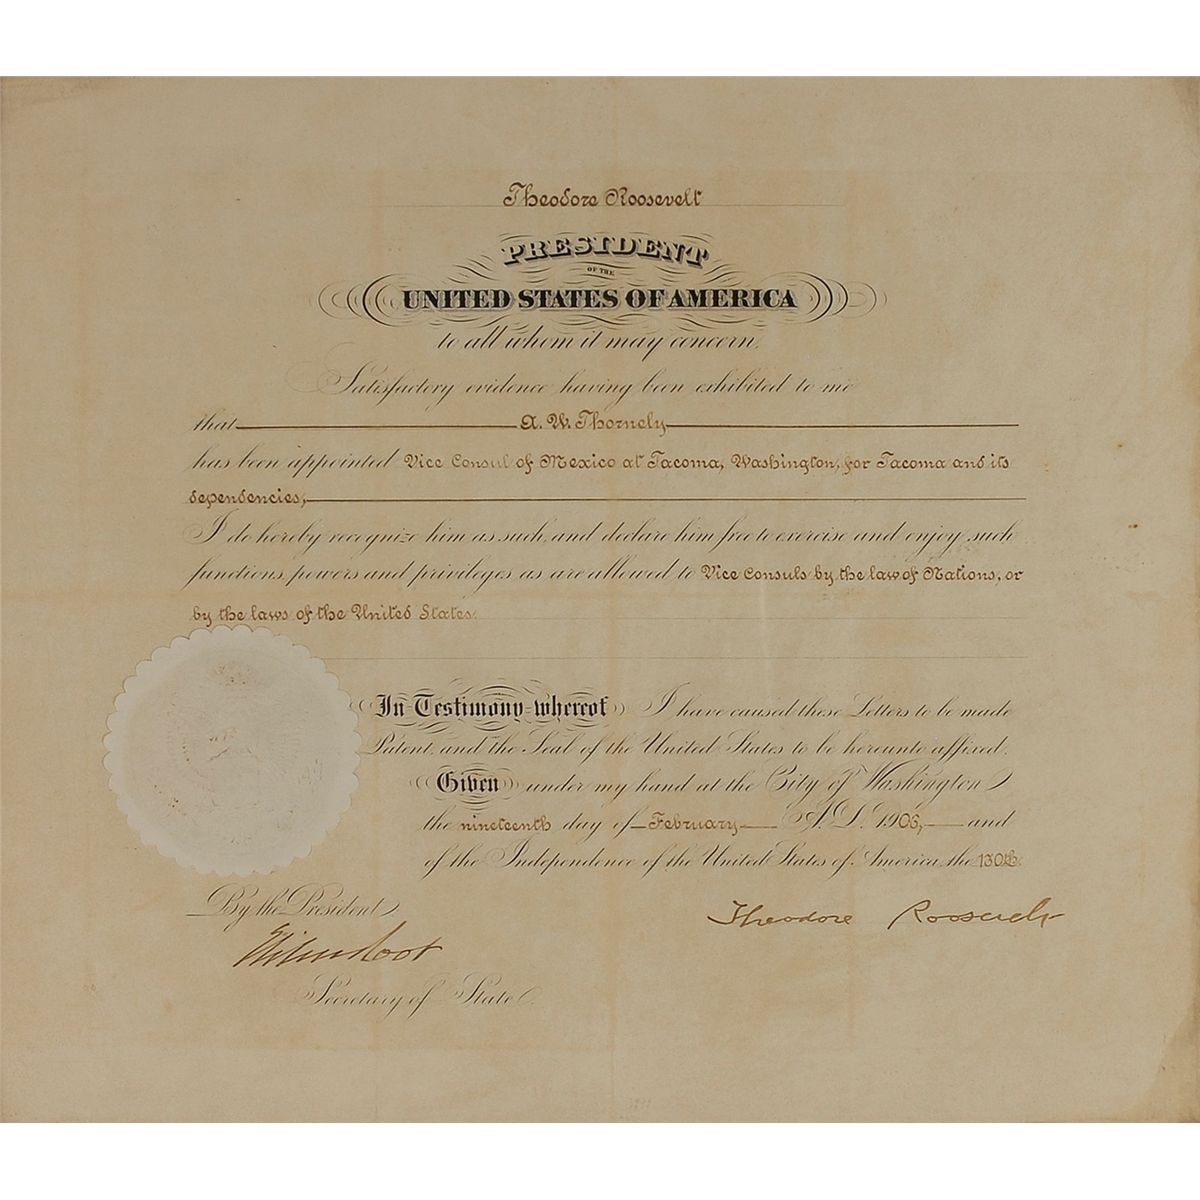 Theodore Roosevelt
PRESIDENT
OF THE
UNITED STATES OF AMERICA
to all whom it may concern.
Satisfactory evidence having been exhibited to me
that A. W. Thornely
has been appointed Vice Consul of Mexico at Tacoma, Washington, for Tacoma and its
dependencies,
I do hereby recognize him as such, and declare him free to exercise and enjoy such
functions, powers and privileges as are allowed to Vice Consuls by the law of Nations, or
by the laws of the United States.
In Testimony whereof I have caused these Letters to be made
Patent, and the Seal of the United States to be hereunto affixed.
Given under my hand at the City of Washington
the nineteenth day of February A.D. 1906, and
of the Independence of the United States of America, the 130th.
By the President
Theodore Roosevelt
Elihu Root
Secretary of State.